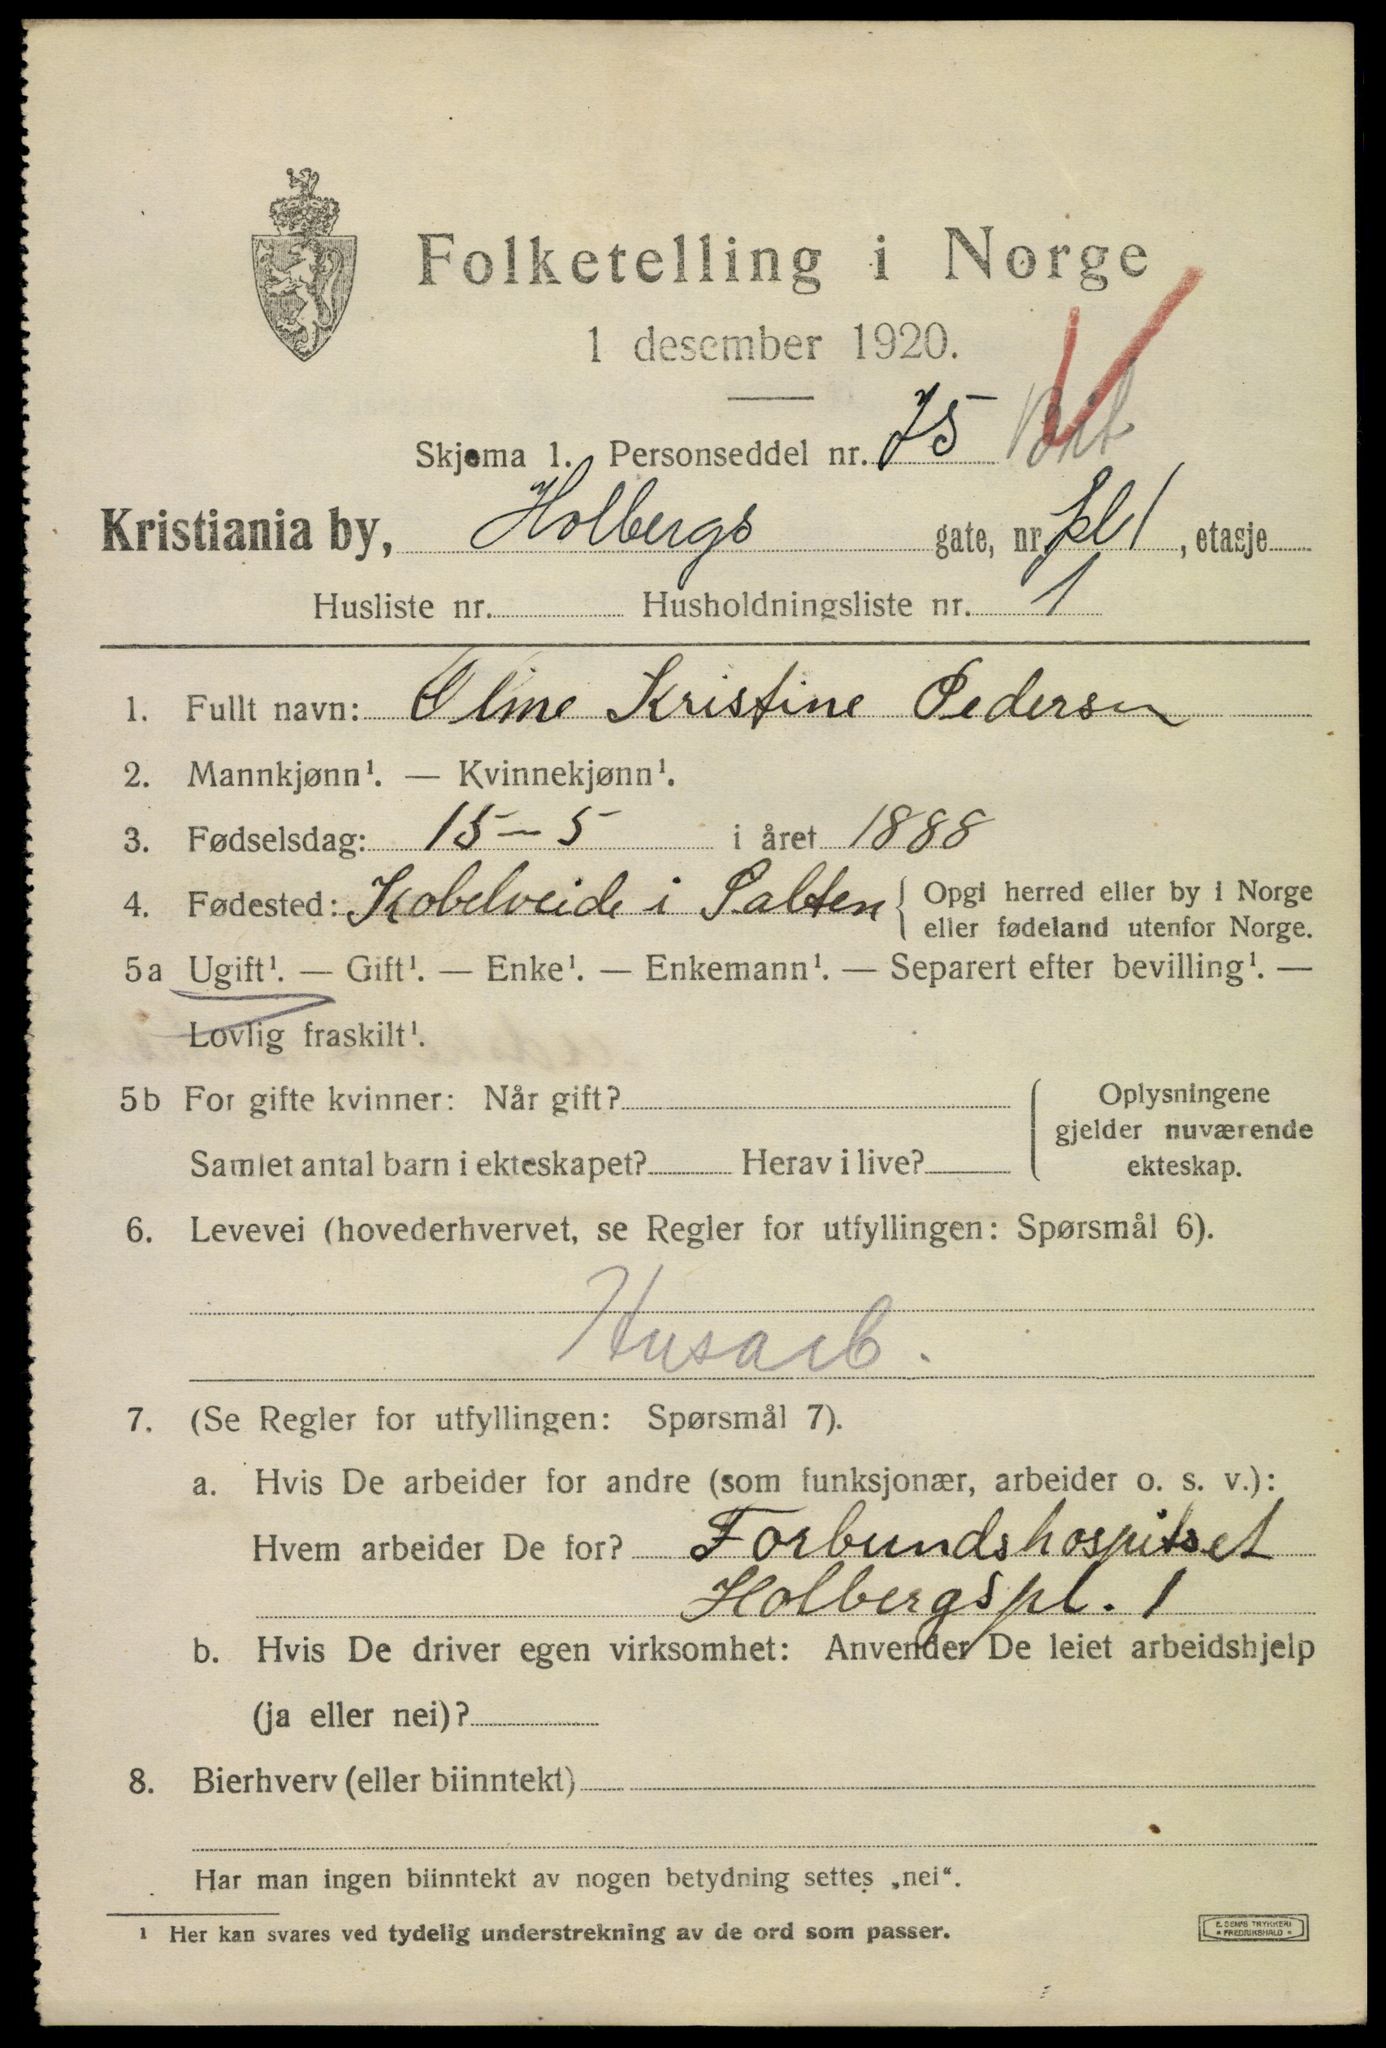 Folketelling i Norge
1 desember 1920.
Skjema 1. Personseddel nr. 75
Kristiania by, Holbergs gate, nr. pl 1, etasje
Husliste nr. Husholdningsliste nr. 1
1. Fullt navn: Oline Kristine Pedersen
2. Mannkjønn¹. — Kvinnekjønn¹.
3. Fødselsdag: 15-5 i året 1888
4. Fødested: Kobelveide i Salten { Opgi herred eller by i Norge
eller fødeland utenfor Norge.
5a Ugift¹. — Gift¹. — Enke¹. — Enkemann¹. — Separert efter bevilling¹. —
Lovlig fraskilt¹.
5b For gifte kvinner: Når gift?
Samlet antal barn i ekteskapet? Herav i live?
Oplysningene
gjelder nuværende
ekteskap.
6. Levevei (hovederhvervet, se Regler for utfyllingen: Spørsmål 6).
Husarb.
7. (Se Regler for utfyllingen: Spørsmål 7).
a. Hvis De arbeider for andre (som funksjonær, arbeider o. s. v.):
Hvem arbeider De for? Forbundshospitset
Holbergspl. 1
b. Hvis De driver egen virksomhet: Anvender De leiet arbeidshjelp
(ja eller nei)?
8. Bierhverv (eller biinntekt)
Har man ingen biinntekt av nogen betydning settes „nei“.
¹ Her kan svares ved tydelig understrekning av de ord som passer.
E. SEM'S TRYKKERI
* FREDRIKSHALD *